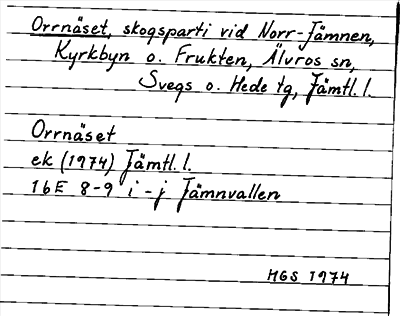 Orrnäset, skogsparti vid Norr-Jämnen,
Kyrkbyn o. Frukten, Älvros sn,
Svegs o. Hede tg, Jämtl. l.
Orrnäset
ek (1974) Jämtl. l.
16E 8-9 i-j Jämnvallen
MGS 1974